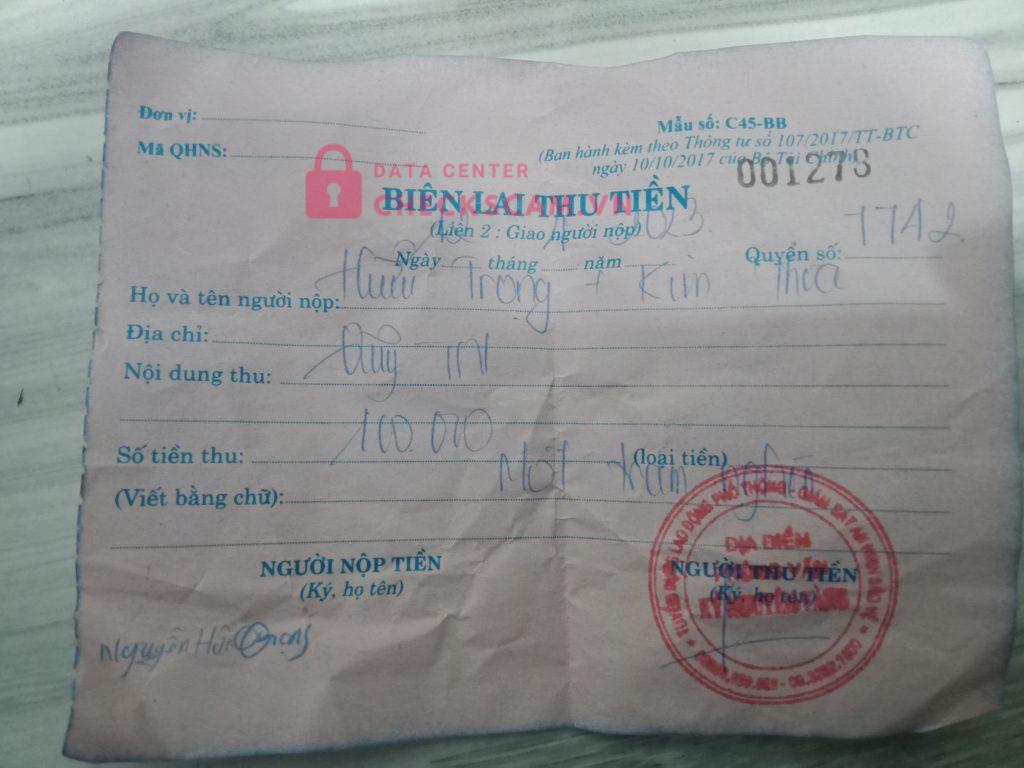 Đơn vị:
Mẫu số: C45-BB
Mã QHNS:
(Ban hành kèm theo Thông tư số 107/2017/TT-BTC
ngày 10/10/2017 của Bộ Tài chính)
001273
DATA CENTER
CHECKSCAM.VN
BIÊN LAI THU TIỀN
(Liên 2 : Giao người nộp)
Ngày tháng năm 2023.
Quyển số: TTA2
Họ và tên người nộp: Hữu Trọng + Kim Thoa
Địa chỉ:
Nội dung thu: Quỹ TN
Số tiền thu: 100.000 (loại tiền)
(Viết bằng chữ): Một trăm nghìn
NGƯỜI NỘP TIỀN
(Ký, họ tên)
Nguyễn Hữu Trọng
NGƯỜI THU TIỀN
(Ký, họ tên)
TUYỂN DỤNG LAO ĐỘNG PHỔ THÔNG - GIÁM SÁT AN NINH BẢO VỆ
ĐỊA ĐIỂM